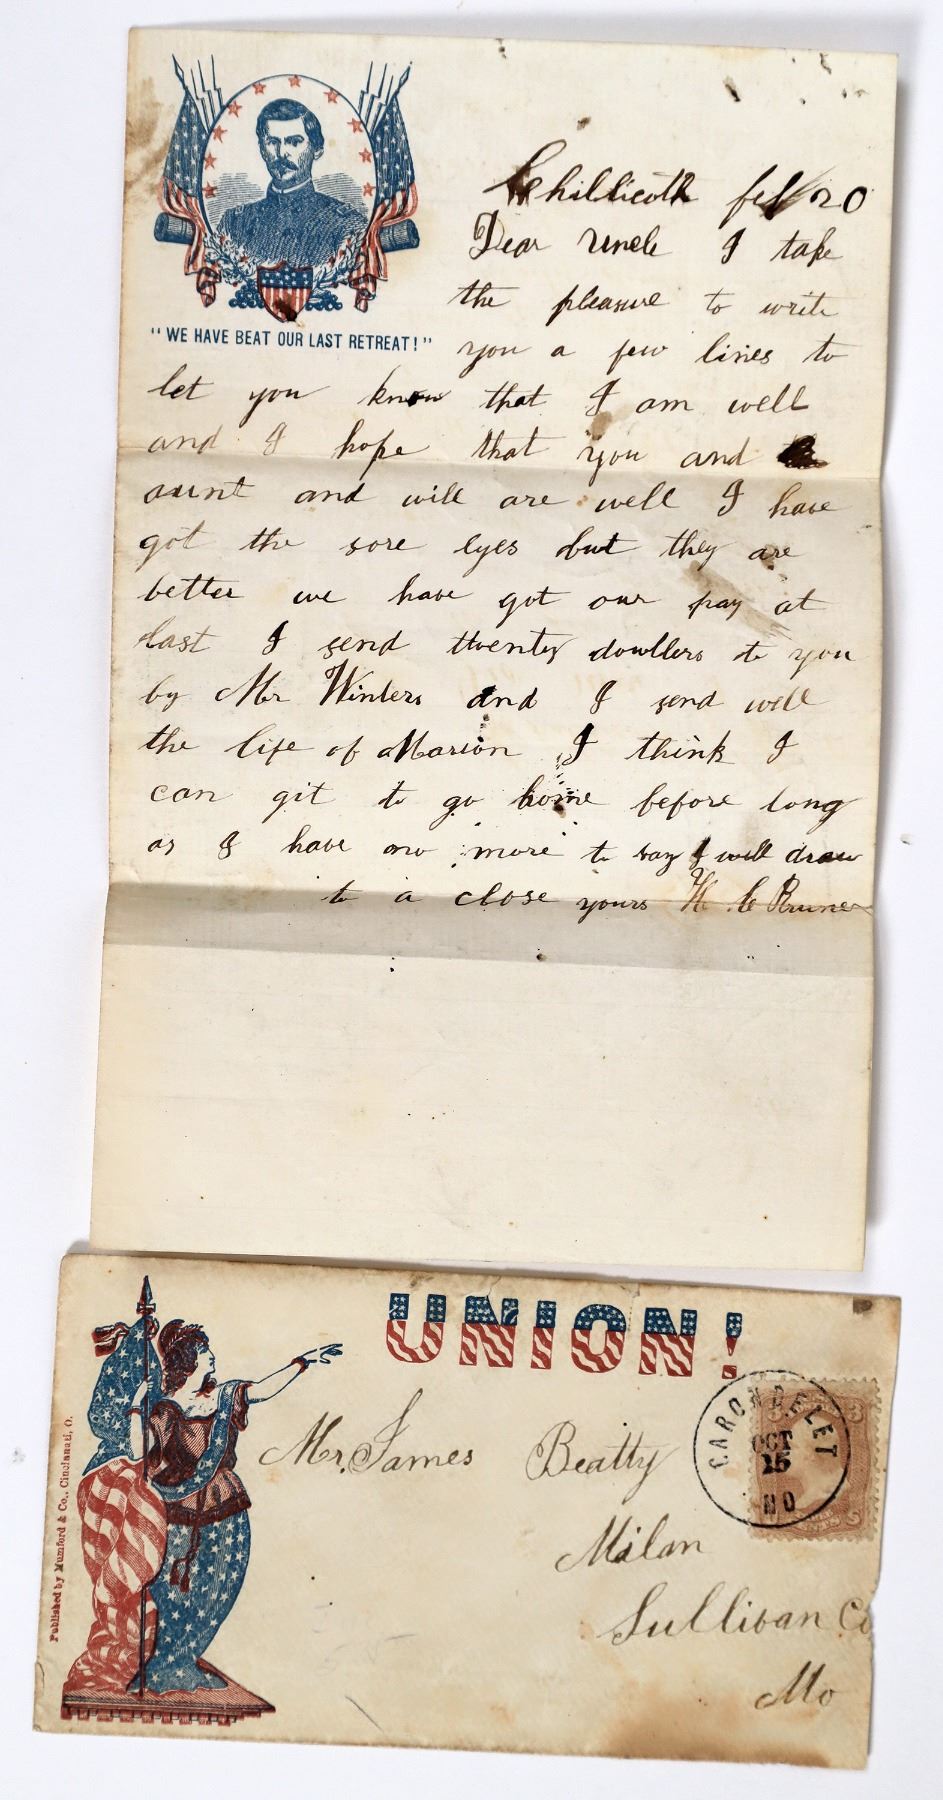 "WE HAVE BEAT OUR LAST RETREAT!"
Chillicoth feb 20
Dear Uncle I take
the pleasure to write
you a few lines to
let you know that I am well
and I hope that you and
aunt and will are well I have
got the sore eyes but they are
better we have got our pay at
last I send twenty dowllers to you
by Mr Winters and I send will
the life of Marion I think I
can git to go home before long
as I have no more to say I will draw
to a close yours H C Bruner
UNION!
Published by Mumford & Co., Cincinnati, O.
CARONDELET
OCT
15
MO
Mr. James Beatty
Milan
Sullivan Co
Mo